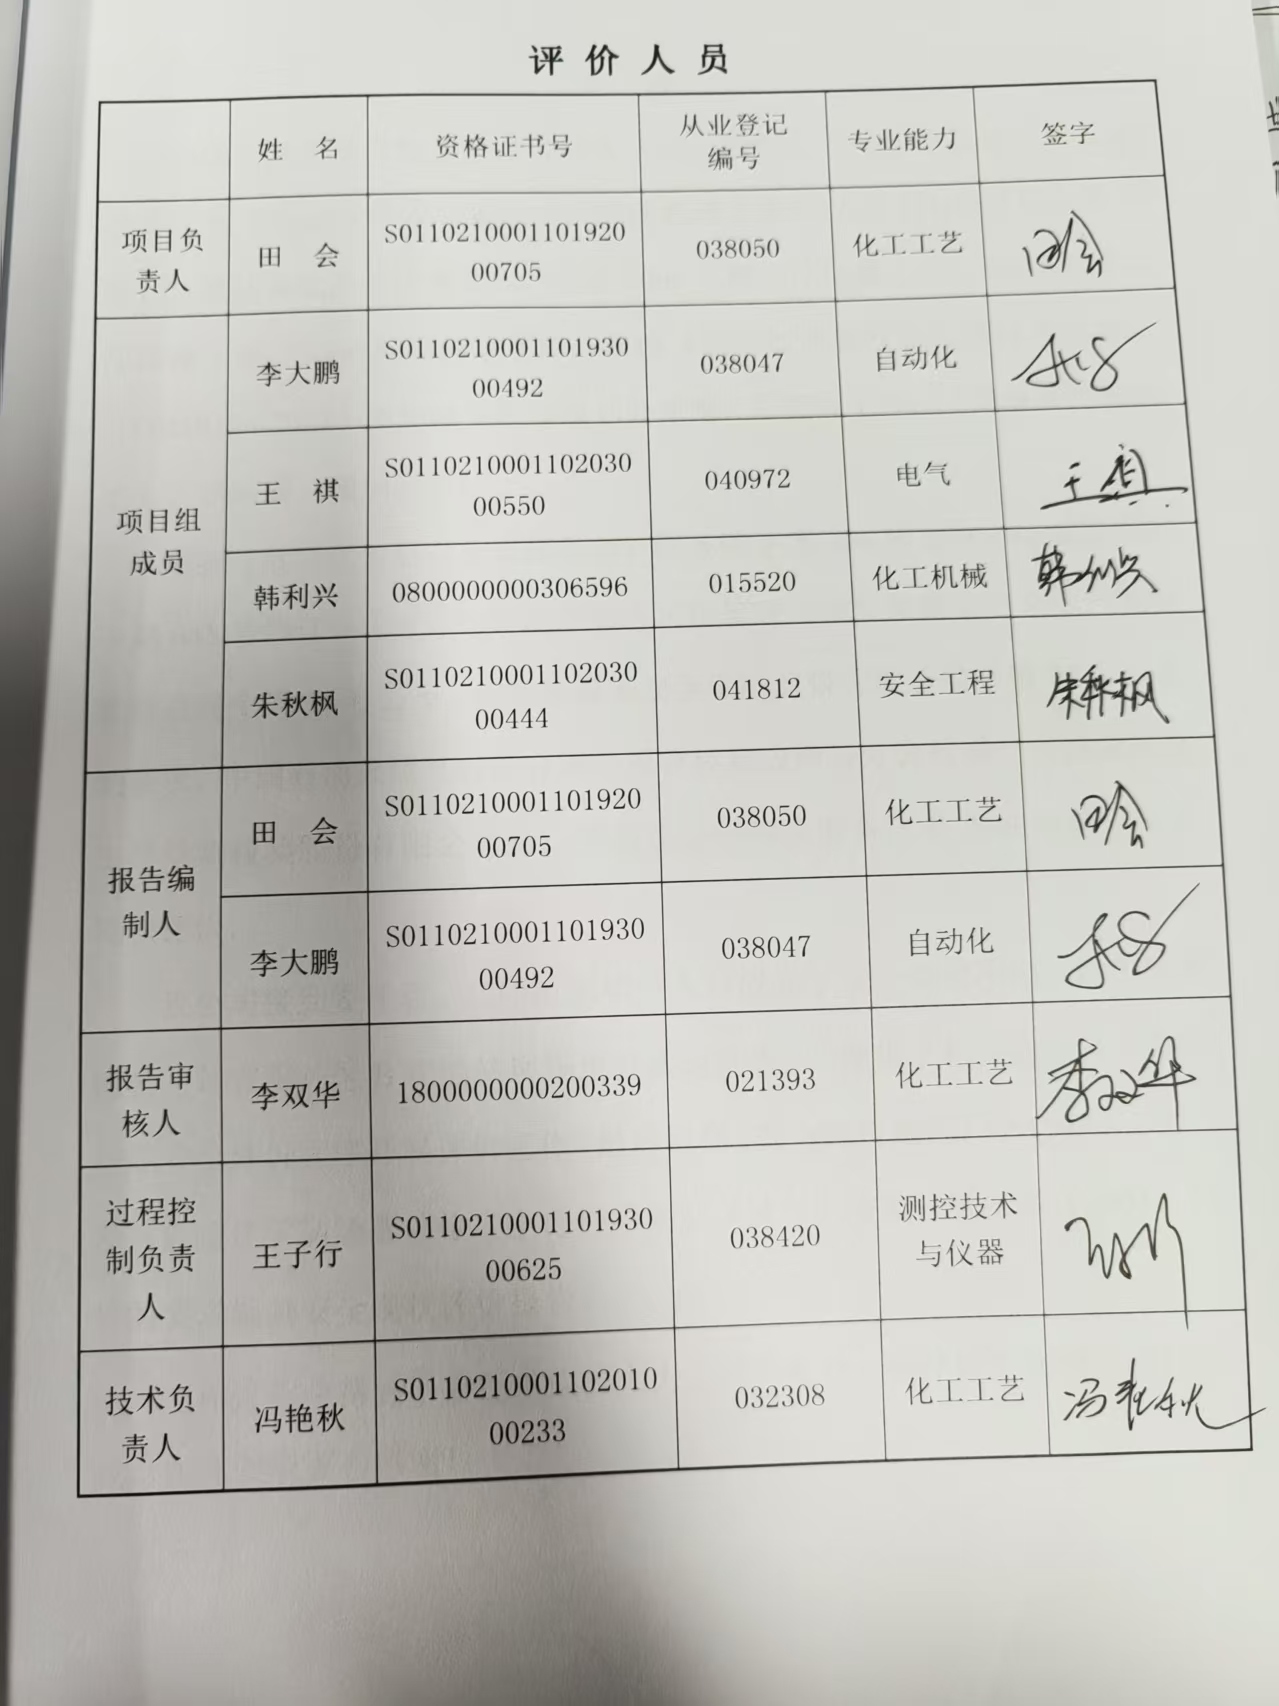 评价人员
姓 名
资格证书号
从业登记
编号
专业能力
签字
项目负
责人
田 会
S0110210001101920
00705
038050
化工工艺
田会
项目组
成员
李大鹏
S0110210001101930
00492
038047
自动化
王 祺
S0110210001102030
00550
040972
电气
王祺
韩利兴
0800000000306596
015520
化工机械
韩利兴
朱秋枫
S0110210001102030
00444
041812
安全工程
朱秋枫
报告编
制人
田 会
S0110210001101920
00705
038050
化工工艺
田会
李大鹏
S0110210001101930
00492
038047
自动化
报告审
核人
李双华
1800000000200339
021393
化工工艺
李双华
过程控
制负责
人
王子行
S0110210001101930
00625
038420
测控技术
与仪器
技术负
责人
冯艳秋
S0110210001102010
00233
032308
化工工艺
冯艳秋